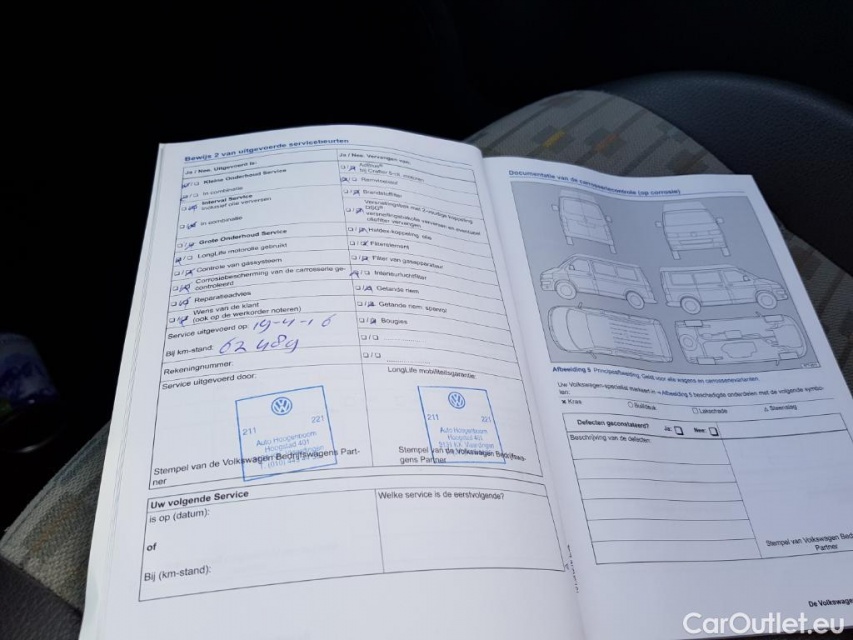 Bewijs 2 van uitgevoerde servicebeurten
Ja / Nee, Uitgevoerd is:
Kleine Onderhoud Service
In combinatie
Interval Service
inclusief olie verversen
In combinatie
Grote Onderhoud Service
LongLife motorolie gebruikt
Controle van gassysteem
Corrosiebescherming van de carrosserie ge-
controleerd
Reparatieadvies
Wens van de klant
(ook op de werkorder noteren)
Service uitgevoerd op: 19-4-16
Bij km-stand: 62489
Rekeningnummer:
Service uitgevoerd door:
211 221
Auto Hoogenboom
Hoogstad 401
Stempel van de Volkswagen Bedrijfswagens Part-
ner
Ja / Nee, Vervangen van:
Remvloeistof
Brandstoffilter
Haldex-koppeling olie
Filterelement
Filter van gasseparator
Interieurluchtfilter
Getande riem
Getande riem, spanrol
Bougies
LongLife mobiliteitsgarantie:
211 221
Auto Hoogenboom
Hoogstad 401
3131 KX Vlaardingen
Stempel van de Volkswagen Bedrijfswa-
gens Partner
Uw volgende Service
is op (datum):
of
Bij (km-stand):
Welke service is de eerstvolgende?
Documentatie van de carrosseriecontrole (op corrosie)
Afbeelding 5 Principeafbeelding. Geldt voor alle wagens en carrosserievarianten.
Uw Volkswagen-specialist markeert in Afbeelding 5 beschadigde onderdelen met de volgende symbo-
len:
x Kras
Lakschade
Steenslag
Defecten geconstateerd? Ja: Nee:
Beschrijving van de defecten:
Stempel van Volkswagen Bed
Partner
De Volkswage
CarOutlet.eu